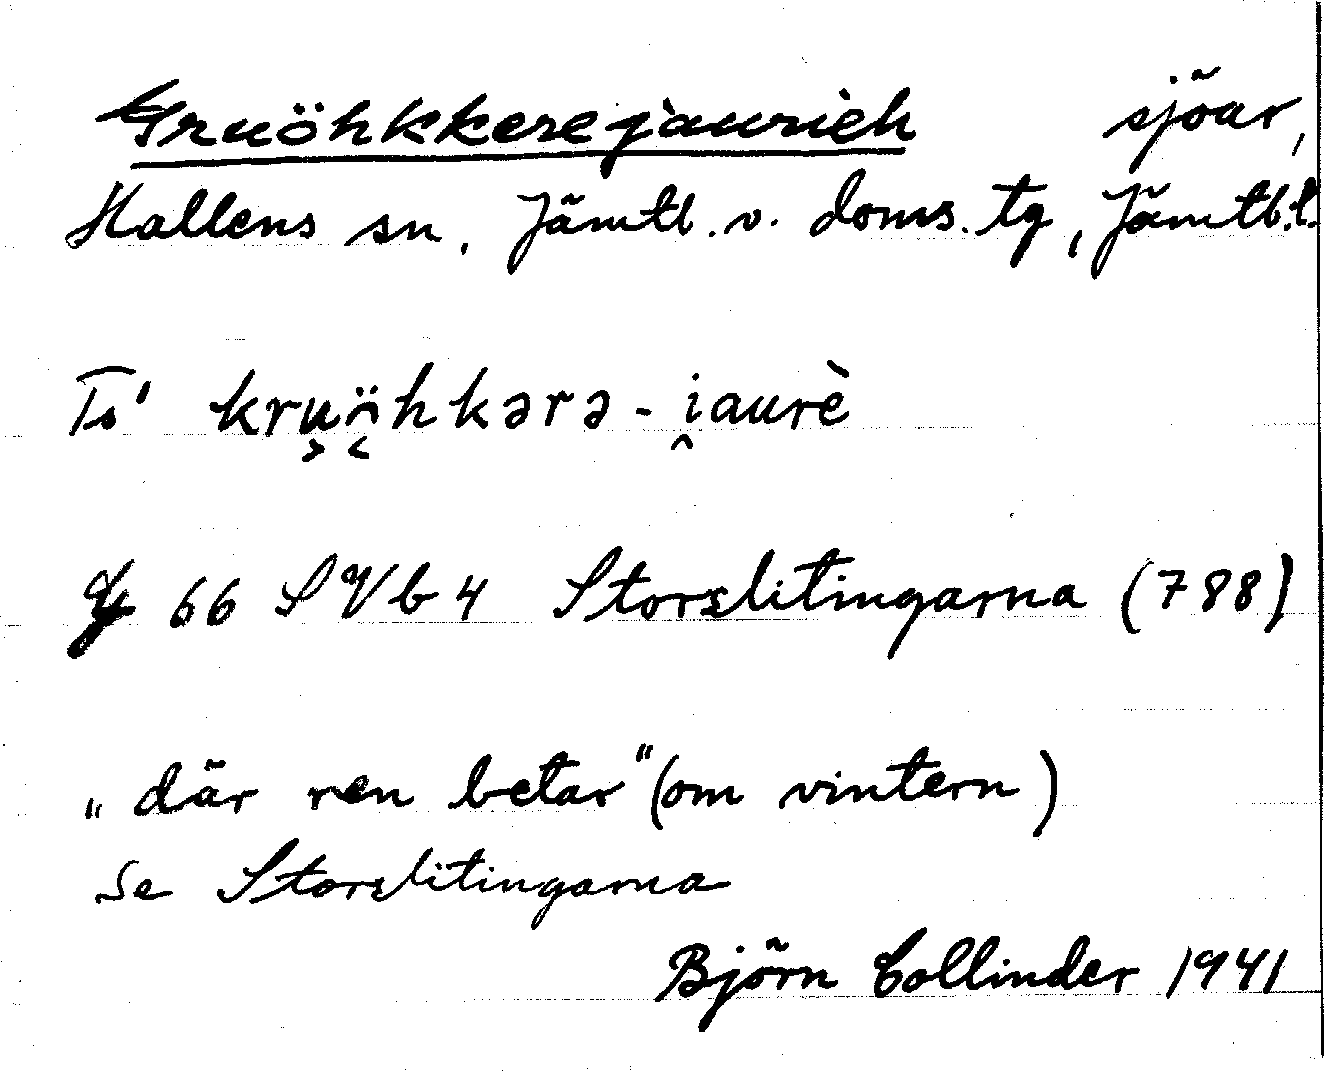 Gruöhkkerejaurieh sjöar,
Hallens sn, Jämtl. v. doms. tg, Jämtl. l.
kru̬n̈hkərə-i̭aurè
66 SVb4 Storslitingarna (788)
„där ren betar" (om vintern)
Se Storslitingarna
Björn Collinder 1941